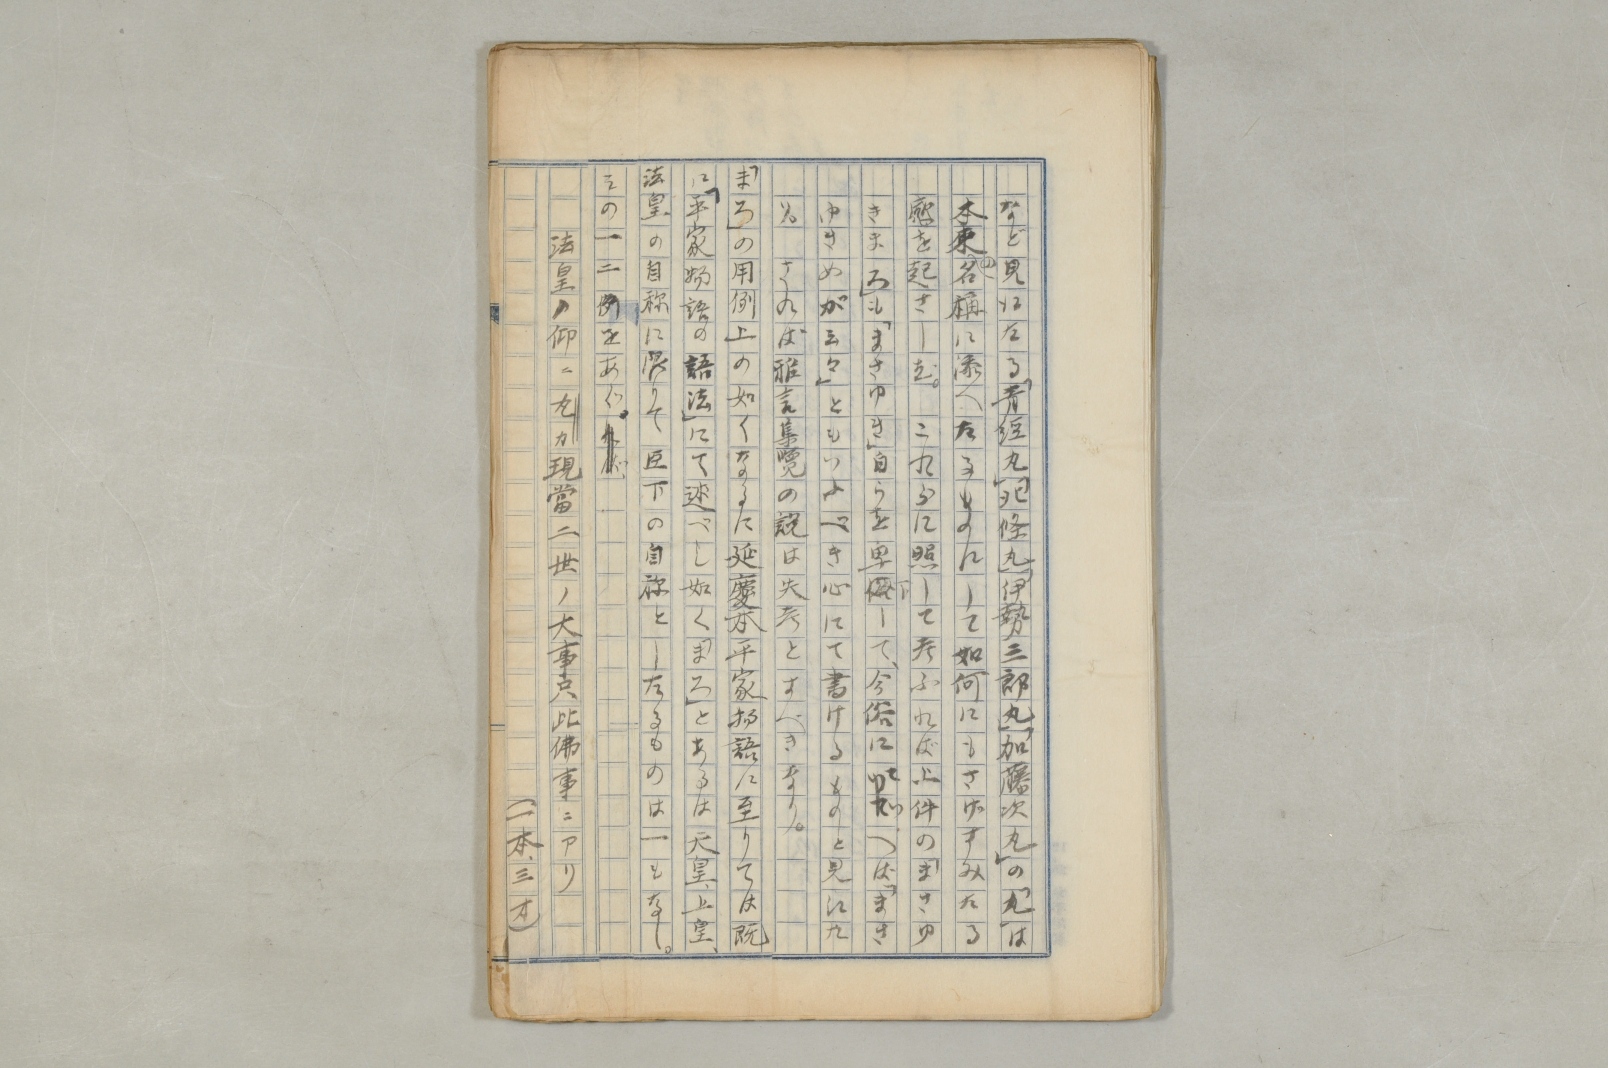 など見江たる「首経丸」「北條丸」「伊勢三郎丸」「加藤次丸」の「丸」は
本来の名稱に添へたるものにして如何にもさかずみたる
感を起さしむ。これらに照して考ふれば上件の「まさゆ
きまろ」も「まさゆき」自らを卑下して、今俗にていへば「まさ
ゆきめが云々」ともいふべき心にて書けるものと見江た
り。されば雅言集覧の説は失考とすべきなり。
「まろ」の用例上の如くなるに延慶本平家物語に至りては既
に「平家物語の語法」にて述べし如く「まろ」とあるは天皇、上皇、
法皇の自称に限りて臣下の自称としたるものは一もなし。
その一二例をあぐ。
法皇ノ仰ニ丸カ現當二世ノ大事只此佛事ニアリ
(一本、三オ)